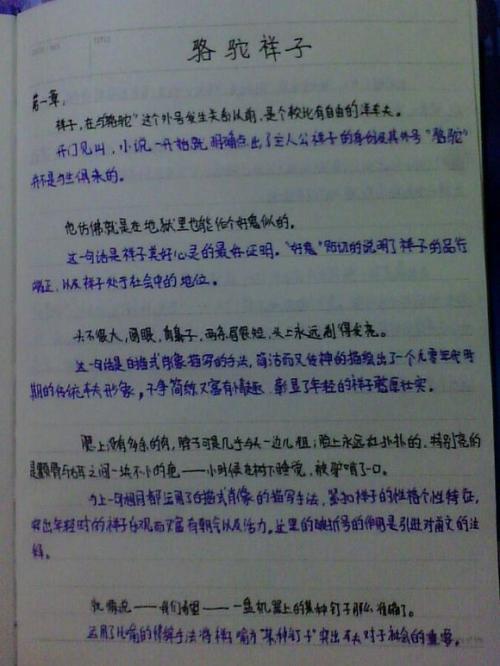 骆驼祥子
第一章:
祥子,在与"骆驼"这个外号发生关系以前,是个较比有自由的洋车夫。
开门见山,小说一开始就明确点出了主人公祥子的身份及其外号"骆驼"
并不是与生俱来的。
他仿佛就是在地狱里也能作个好鬼似的。
这一句话是祥子美好心灵的最好证明。"好鬼"贴切的说明了祥子的品行
端正,以及祥子处于社会中的地位。
头不很大,圆眼,肉鼻子,两条眉很短,头上永远剃得发亮。
这一句话是白描式肖像描写的手法,简洁而又传神的描绘出了一个
期的传统车夫形象,干净简练又富有情趣,彰显了年轻的祥子憨厚壮实。
腮上没有多余的肉,脖子可是几乎与头一边儿粗;脸上永远红扑扑的,特别亮的
是颧骨与右耳之间一块不小的疤——小时候在树下睡觉,被驴啃了一口。
以上一句相同都运用了白描式肖像的描写手法,紧扣祥子的性格个性特征,
突出年轻时的祥子乐观而又富有朝气以及活力。这里的破折号的作用是引进对前文的注
解。
就像说——我们希望——一盘机器上的某种钉子那么准确了。
运用了比喻的修辞手法将祥子喻为"某种钉子"突出车夫对于社会的重要。